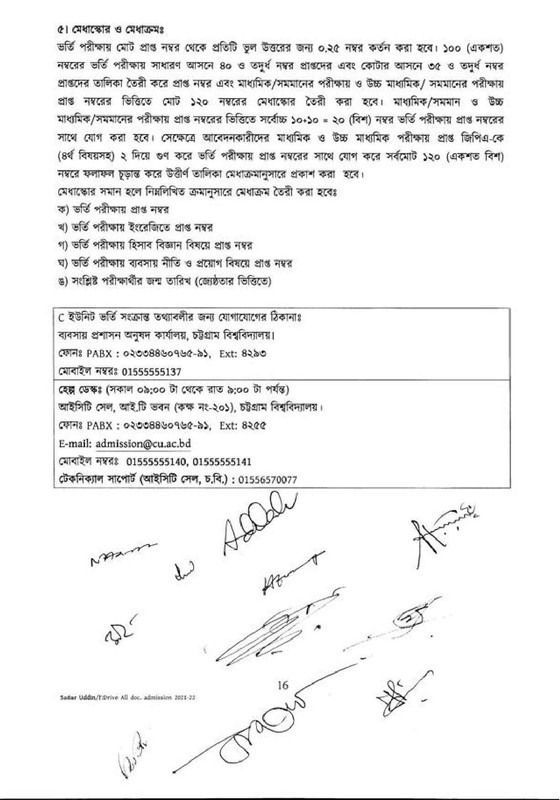 ৫। মেধাস্কোর ও মেধাক্রমঃ
ভর্তি পরীক্ষায় মোট প্রাপ্ত নম্বর থেকে প্রতিটি ভুল উত্তরের জন্য ০.২৫ নম্বর কর্তন করা হবে। ১০০ (একশত)
নম্বরের ভর্তি পরীক্ষায় সাধারণ আসনে ৪০ ও তদুর্ধ নম্বর প্রাপ্তদের এবং কোটার আসনে ৩৫ ও তদুর্ধ নম্বর
প্রাপ্তদের তালিকা তৈরী করে প্রাপ্ত নম্বর এবং মাধ্যমিক/সমমানের পরীক্ষায় ও উচ্চ মাধ্যমিক/ সমমানের পরীক্ষায়
প্রাপ্ত নম্বরের ভিত্তিতে মোট ১২০ নম্বরের মেধাস্কোর তৈরী করা হবে। মাধ্যমিক/সমমান ও উচ্চ
মাধ্যমিক/সমমানের পরীক্ষায় প্রাপ্ত নম্বরের ভিত্তিতে সর্বোচ্চ ১০+১০ = ২০ (বিশ) নম্বর ভর্তি পরীক্ষায় প্রাপ্ত নম্বরের
সাথে যোগ করা হবে। সেক্ষেত্রে আবেদনকারীদের মাধ্যমিক ও উচ্চ মাধ্যমিক পরীক্ষায় প্রাপ্ত জিপিএ-কে
(৪র্থ বিষয়সহ) ২ দিয়ে গুণ করে ভর্তি পরীক্ষায় প্রাপ্ত নম্বরের সাথে যোগ করে সর্বমোট ১২০ (একশত বিশ)
নম্বরে ফলাফল চূড়ান্ত করে উত্তীর্ণ তালিকা মেধাক্রমানুসারে প্রকাশ করা হবে।
মেধাস্কোর সমান হলে নিম্নলিখিত ক্রমানুসারে মেধাক্রম তৈরী করা হবেঃ
ক) ভর্তি পরীক্ষায় প্রাপ্ত নম্বর
খ) ভর্তি পরীক্ষায় ইংরেজিতে প্রাপ্ত নম্বর
গ) ভর্তি পরীক্ষায় হিসাব বিজ্ঞান বিষয়ে প্রাপ্ত নম্বর
ঘ) ভর্তি পরীক্ষায় ব্যবসায় নীতি ও প্রয়োগ বিষয়ে প্রাপ্ত নম্বর
ঙ) সংশ্লিষ্ট পরীক্ষার্থীর জন্ম তারিখ (জ্যেষ্ঠতার ভিত্তিতে)
C ইউনিট ভর্তি সংক্রান্ত তথ্যাবলীর জন্য যোগাযোগের ঠিকানাঃ
ব্যবসায় প্রশাসন অনুষদ কার্যালয়, চট্টগ্রাম বিশ্ববিদ্যালয়।
ফোনঃ PABX : ০২৩৩৪৪৬০৭৬৫-৯১, Ext: ৪২৯৩
মোবাইল নম্বরঃ 01555555137
হেল্প ডেস্কঃ (সকাল ০৯:০০ টা থেকে রাত ৯:০০ টা পর্যন্ত)
আইসিটি সেল, আই.টি ভবন (কক্ষ নং-২০১), চট্টগ্রাম বিশ্ববিদ্যালয়।
ফোনঃ PABX : ০২৩৩৪৪৬০৭৬৫-৯১, Ext: ৪২৫৫
E-mail: admission@cu.ac.bd
মোবাইল নম্বরঃ 01555555140, 01555555141
টেকনিক্যাল সাপোর্ট (আইসিটি সেল, চ.বি.) : 01556570077
16
Sadar Uddin/F:Drive All doc. admission 2021-22